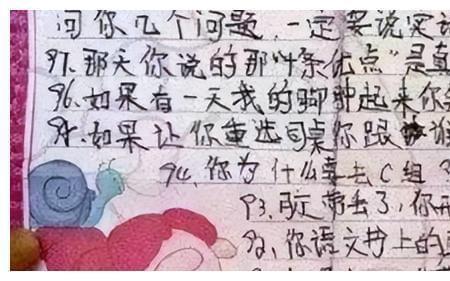 问你几个问题，一定要说实话
97.那天你说的那“4条优点”是真
96.如果有一天我的脚肿起来你
95.如果让你重选同桌你跟谁
94.你为什么要去C组？
93.丢了，你
92.你语文书上的